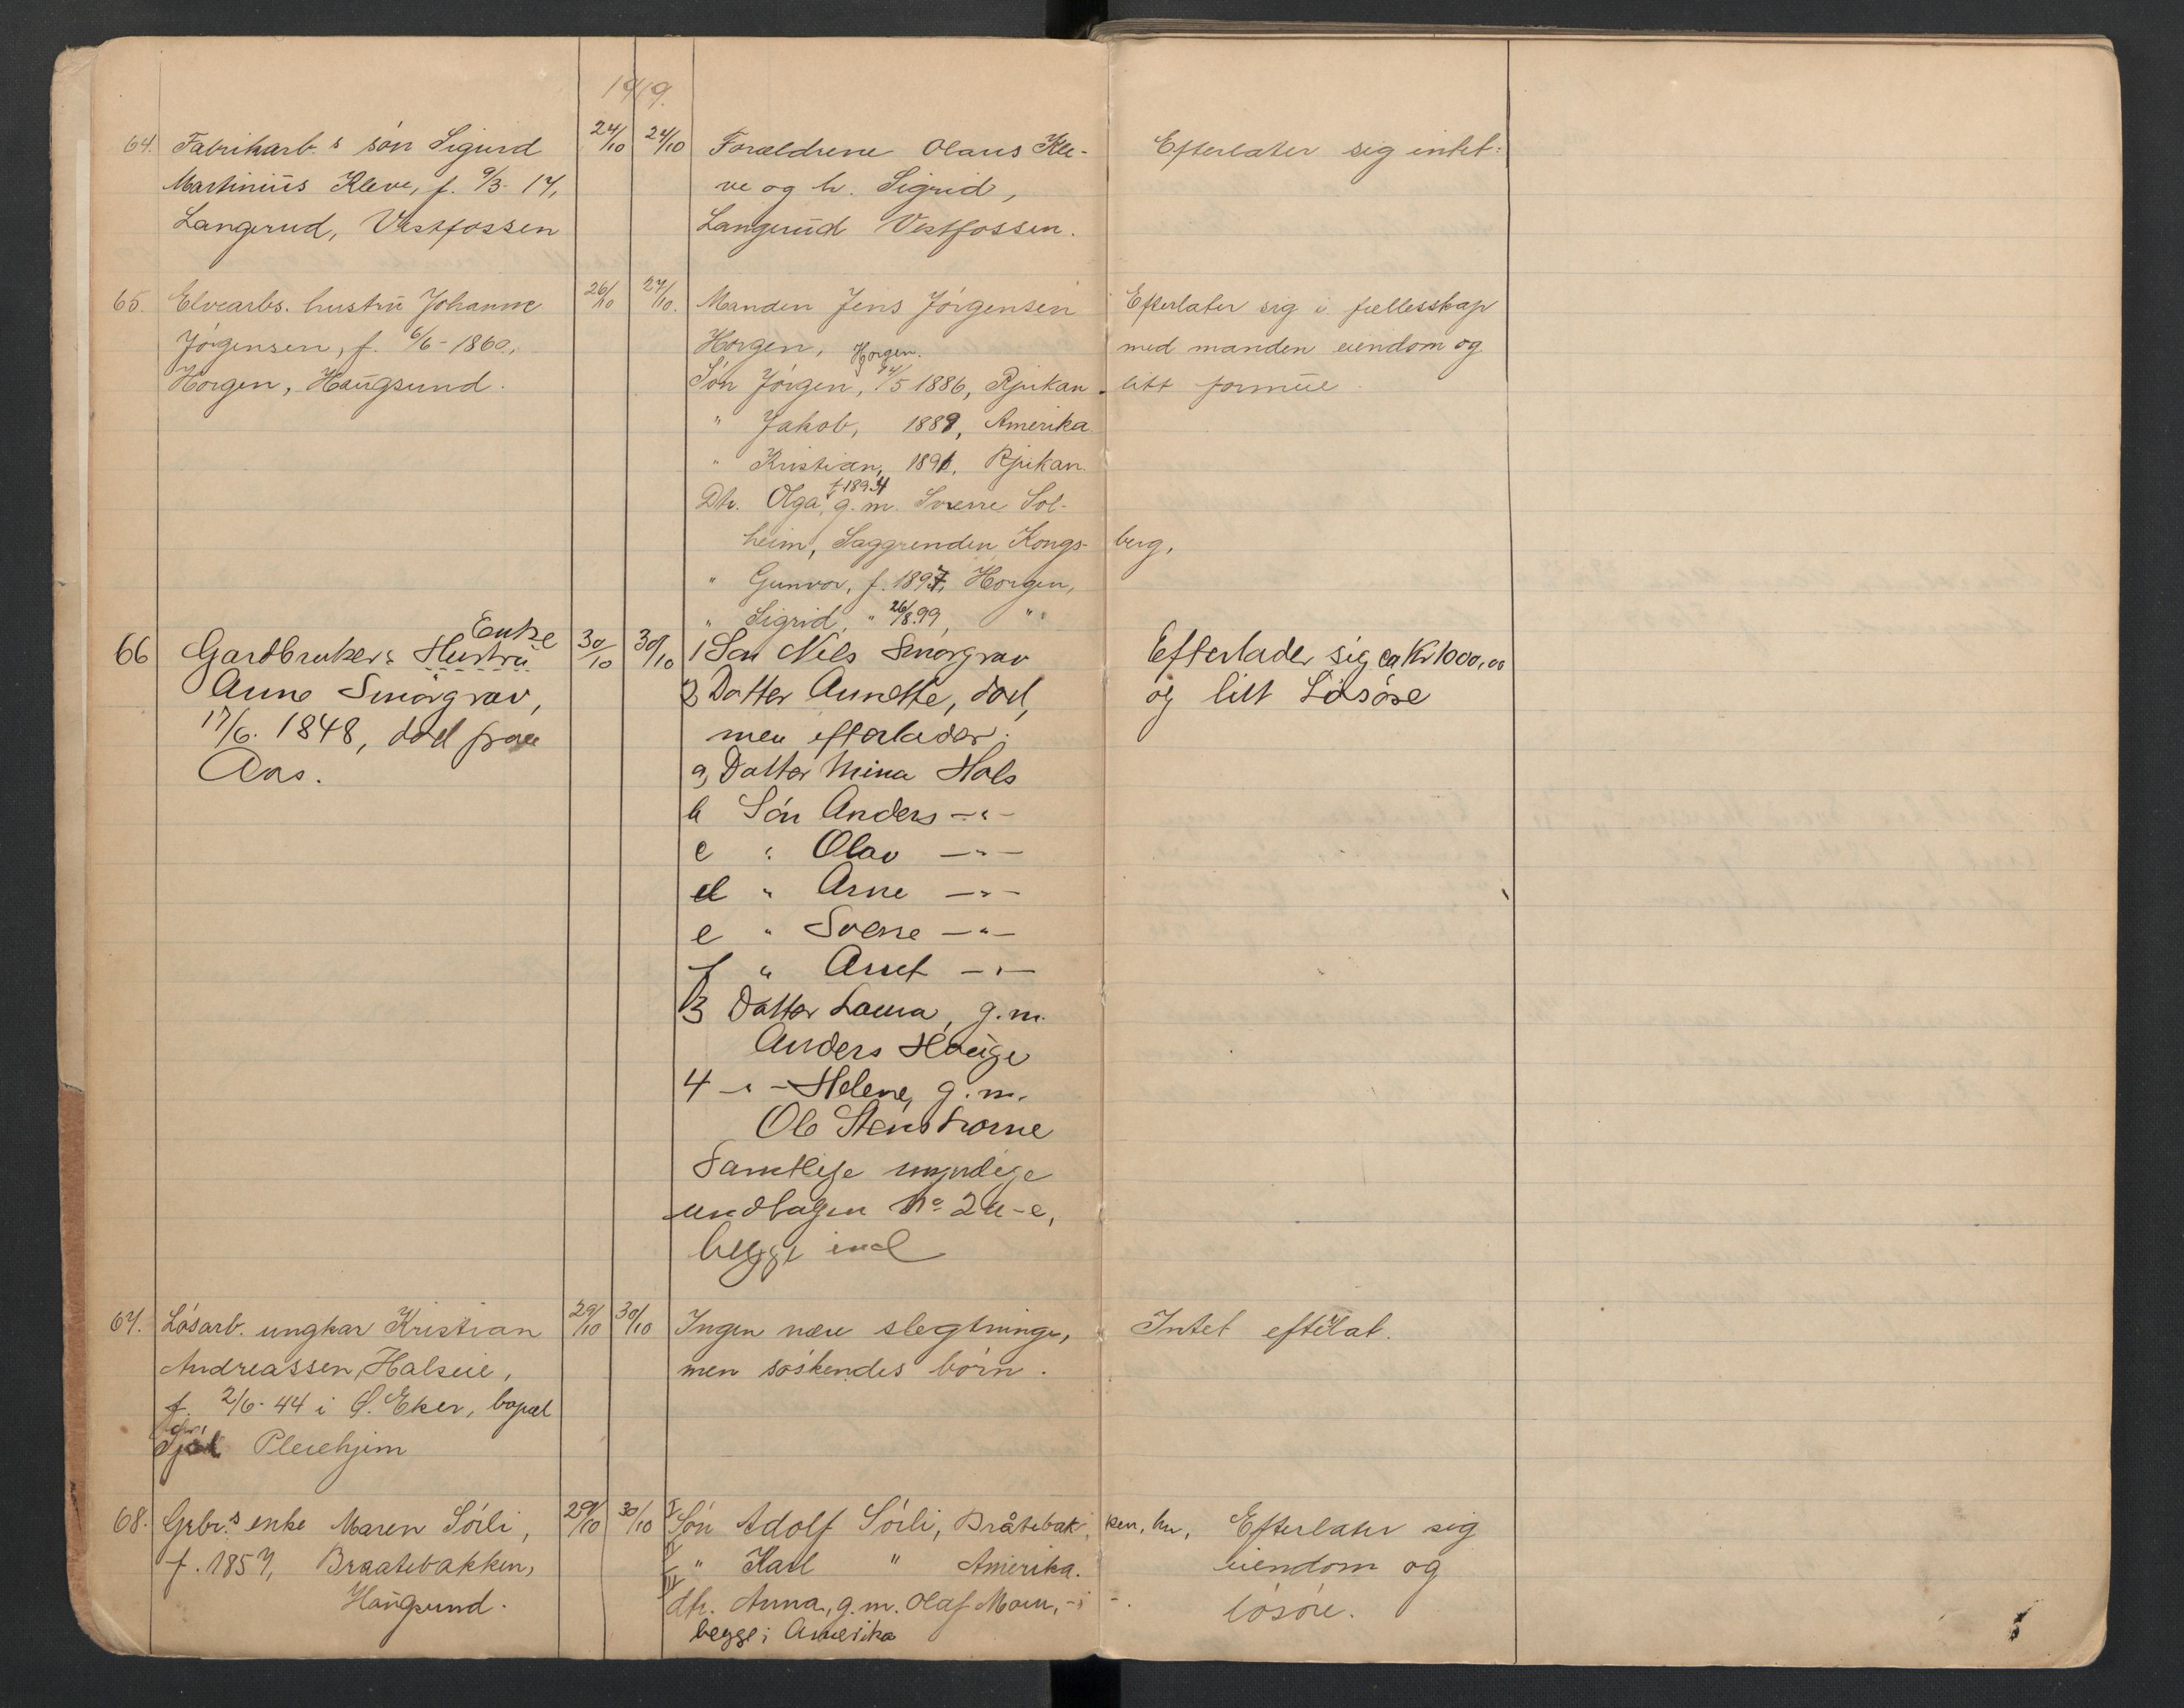 1919.
64. Fabrikarb.s sön Sigurd 24/10 24/10 Forældrene Olaus Kle- Efterlater sig intet.
Martinius Kleve, f. 9/3- 17, ve og h. Sigrid,
Langerud, Vestfossen Langerud Vestfossen.
65. Elvearbs. hustru Johanne 26/10 27/10. Manden Jens Jörgensen Efterlater sig i fællesskap
Jörgensen, f. 6/6- 1860, Horgen, med manden eiendom og
Horgen.
Horgen, Haugsund. Sön Jörgen, 1886, Rjukan litt formue.
" Jakob, 1889, Amerika
" Kristian, 1891, Rjukan.
f. 1894
Dtr. Olga, g.m. Sverre Sol-
heim, Saggrenden Kongs- berg,
" Gunvor, f. 1897, Horgen,
" Sigrid, " 26/8.99, " "
Enke
66 Gardbrukers Hustru 30/10 30/10 1 Sön Nils Smörgrav Efterlader sig ca Kr 1000,00
Anne Smörgrav, 2 Datter Annette, död, og litt Lösöre
17/6. 1848, död paa men efterlader:
Aas. a, Datter Mina Hals
b Sön Anders -"-
c " Olav -"-
d " Arne -"-
e " Sverre -"-
f " Arnt -"-
3 Datter Laura, g.m.
Anders Hauge
4 -"- Helene, g.m.
Ole Stensrorne
Samtlige myndige
undtagen No 2 a-e,
begge incl
67. Lösarb. ungkar Kristian 29/10 30/10 Ingen nære slegtninge, Intet efterlat.
Andreassen, Halseie, men söskendes börn.
f. 2/6- 44 i Ø. Eker, bopæl
Pleiehjem
68. Grbr.s enke Maren Sörli, 29/10 30/10 I Sön Adolf Sörli, Bråtebak ken, hu, Efterlater sig
f. 1857, Braatebakken, II " Karl " Amerika. eiendom og
Haugsund. III dtr. Anna, g.m. Olaf Moen, -"- lösöre.
begge i Amerika